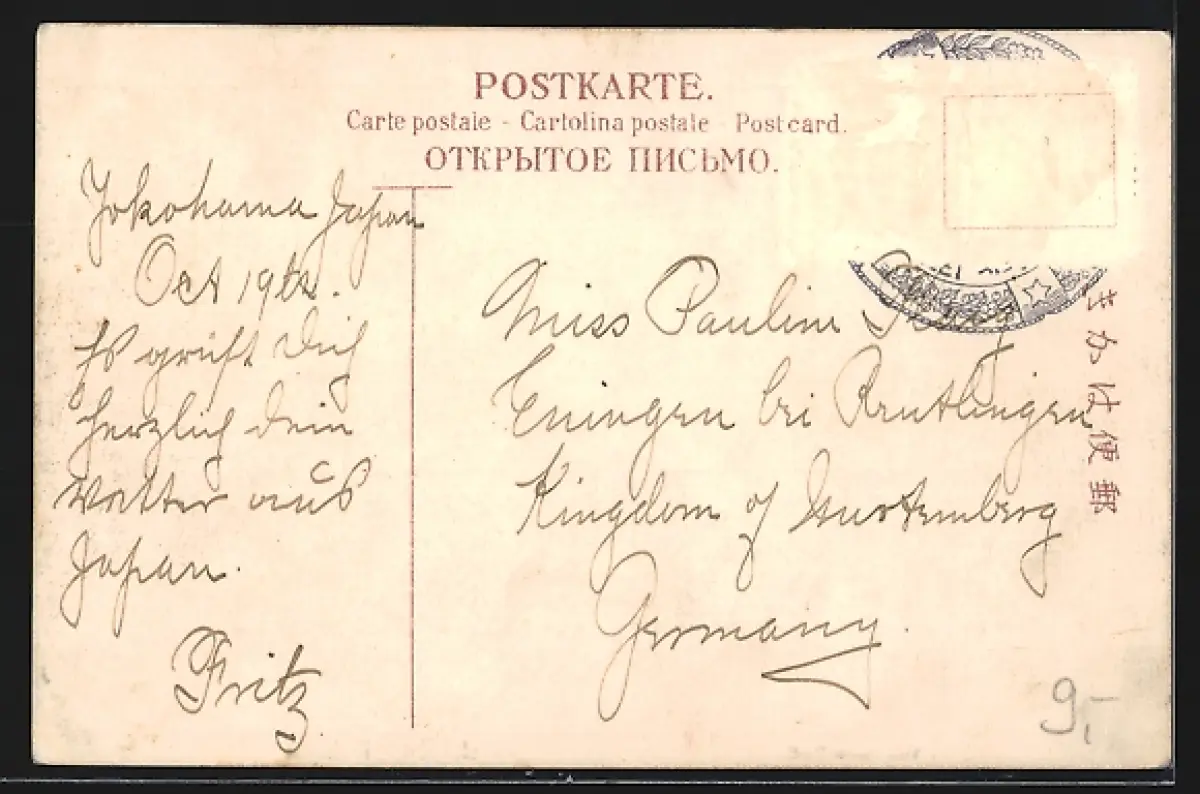 POSTKARTE.
Carte postale - Cartolina postale Post card.
ОТКРЫТОЕ ПИСЬМО.
Yokohama Japan
Oct
Es grüßt Dich
herzlich Dein
Vetter aus
Japan.
Fritz
Miss Pauline
Eningen bei Reutlingen
Kingdom of Wurtemberg
Germany.
郵便はかき
9,-